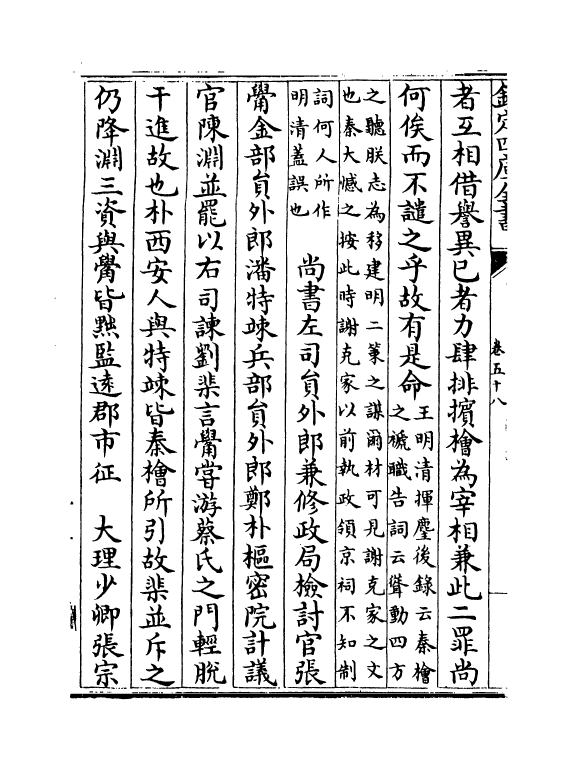 欽定四庫全書
卷五十八
者互相借譽異已者力肆排擯檜為宰相兼此二罪尚
何俟而不譴之乎故有是命
王明清揮麈後錄云秦檜
之褫職告詞云聳動四方
之聽朕志為移建明二策之謀爾材可見謝克家之文
也秦大憾之按此時謝克家以前執政領京祠不知制
詞何人所作
明清蓋誤也
尚書左司員外郎兼修政局檢討官張
觷金部員外郎潘特竦兵部員外郎鄭朴樞密院計議
官陳淵並罷以右司諫劉棐言觷嘗游蔡氏之門輕脫
干進故也朴西安人與特竦皆秦檜所引故棐並斥之
仍降淵三資與觷皆㸃監逺郡市征 大理少卿張宗